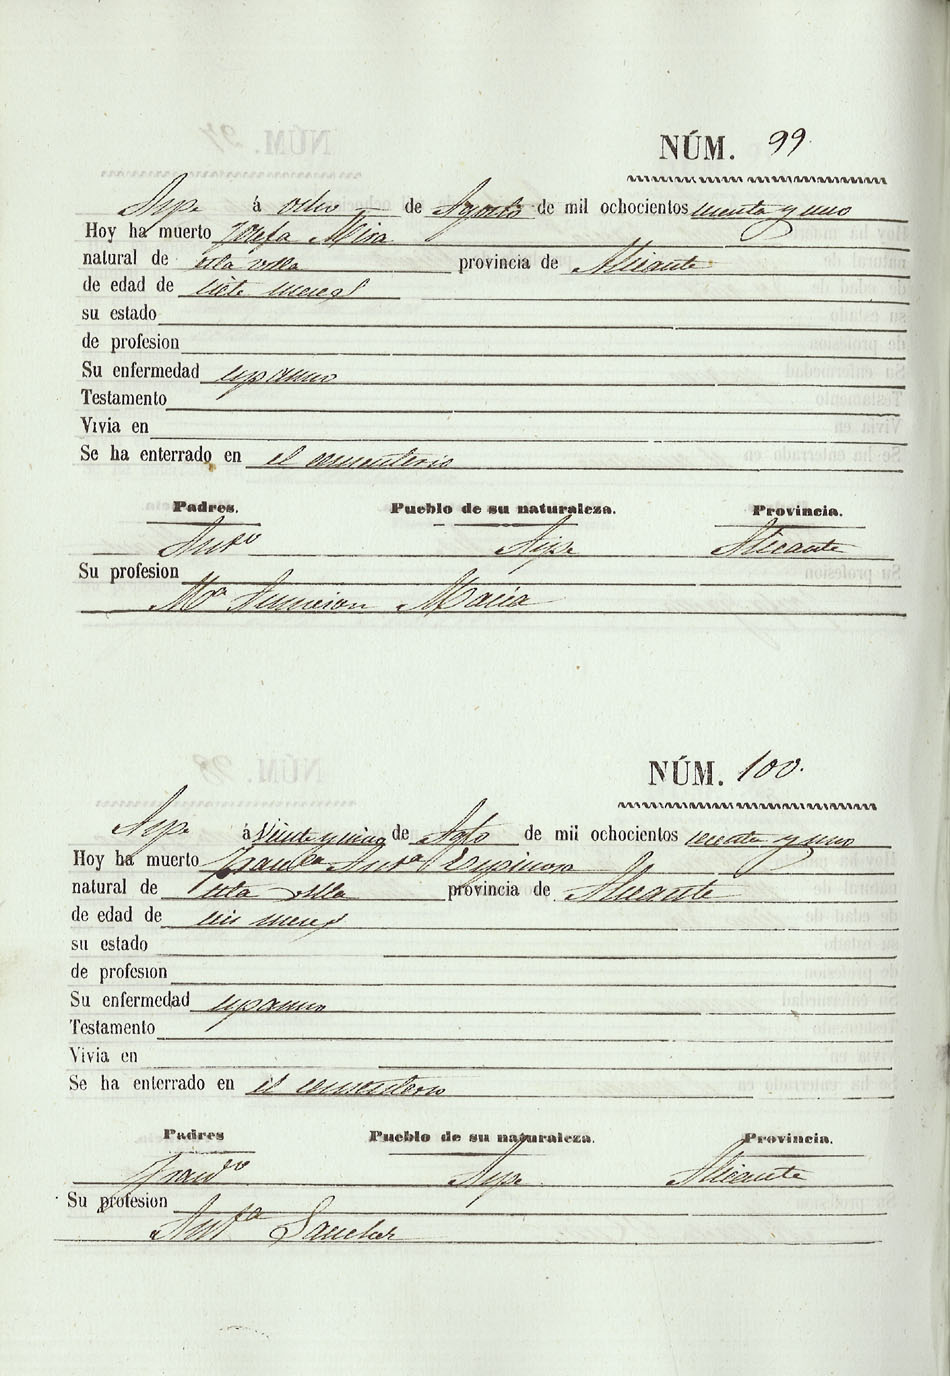 NÚM. 99
Aspe á ocho de Agosto de mil ochocientos cuenta y uno
Hoy ha muerto Josefa Mira
natural de esta villa provincia de Alicante
de edad de siete meses
su estado
de profesion
Su enfermedad espasmo
Testamento
Vivia en
Se ha enterrado en el cementerio
Padres. Pueblo de su naturaleza. Provincia.
Antº Aspe Alicante
Su profesion
Mª Asuncion Maciá
NÚM. 100.
Aspe á de Agto de mil ochocientos cuenta y uno
Hoy ha muerto Franca Anta Espinosa
natural de esta villa provincia de Alicante
de edad de seis meses
su estado
de profesion
Su enfermedad espasmo
Testamento
Vivia en
Se ha enterrado en el cementerio
Padres Pueblo de su naturaleza. Provincia.
Franco Aspe Alicante
Su profesion
Anta Sanchez